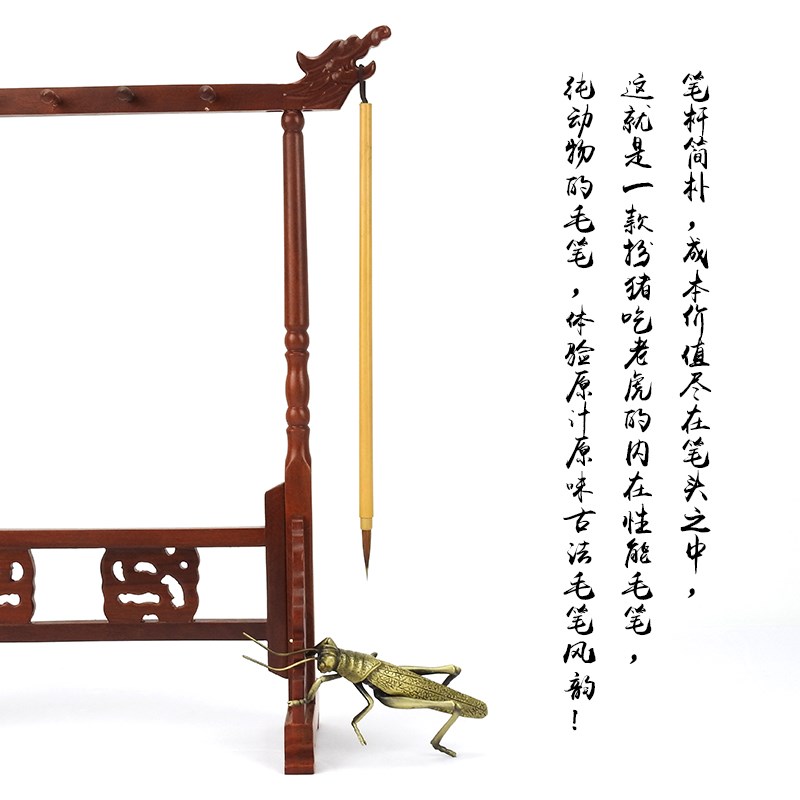 笔杆简朴，成本价值尽在笔头之中，
这就是一款扮猪吃老虎的内在性能毛笔，
纯动物的毛笔，体验原汁原味古法毛笔风韵！